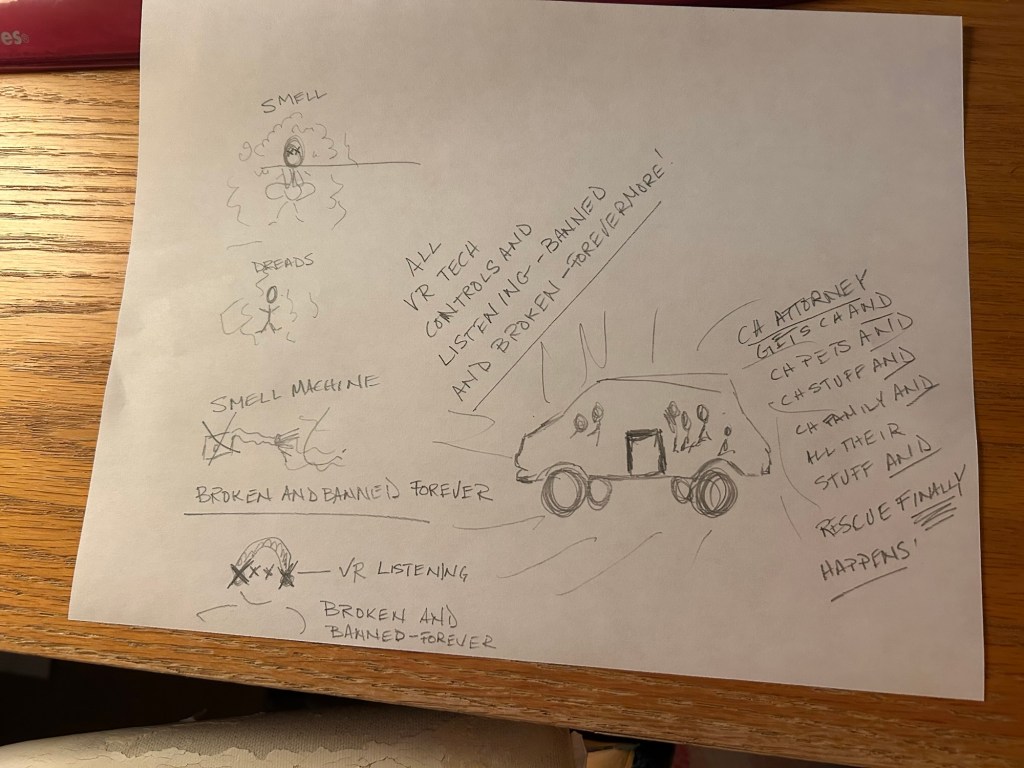 es
SMELL
DREADS
SMELL MACHINE
BROKEN AND BANNED FOREVER
VR LISTENING
BROKEN AND
BANNED-FOREVER
ALL
VR TECH
CONTROLS AND
LISTENING - BANNED
AND BROKEN - FOREVERMORE!
CH ATTORNEY
GETS CH AND
CH PETS AND
CH STUFF AND
CH FAMILY AND
ALL THEIR
STUFF AND
RESCUE FINALLY
HAPPENS!